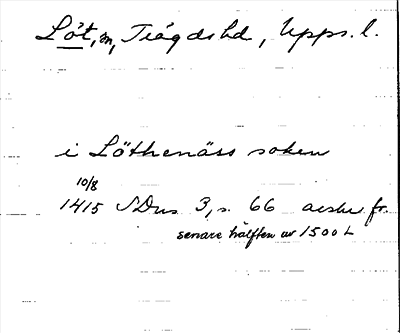 Löt, sn, Trögds hd, Upps. l.
i Löthenäss soken
10/8
1415 SDns 3, s. 66 avskr. fr.
senare hälften av 1500 t.